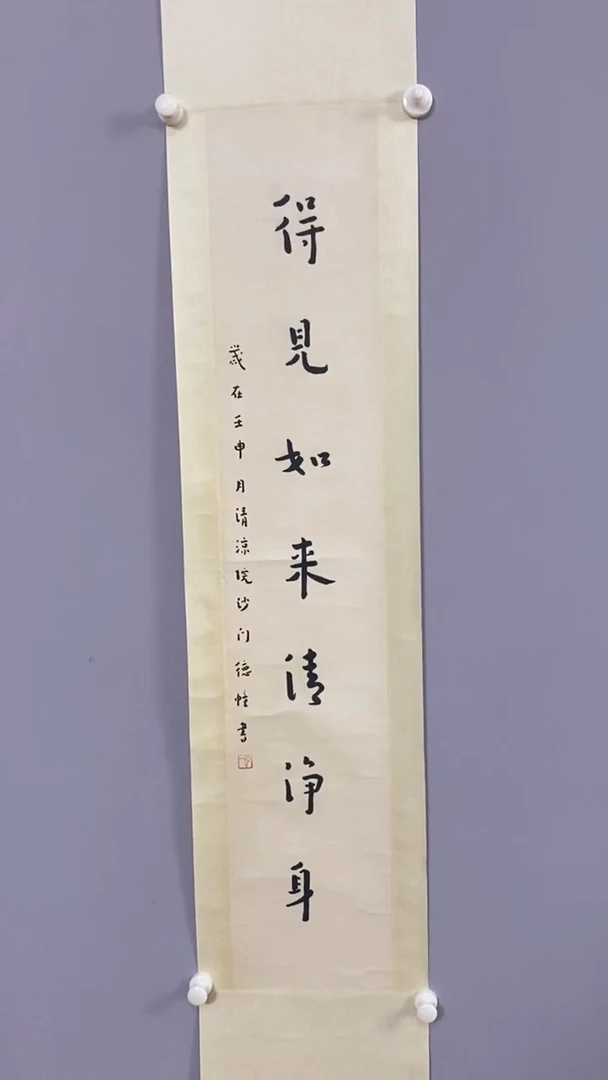 得見如来清浄身
歲在壬申月清涼院沙门德幢書